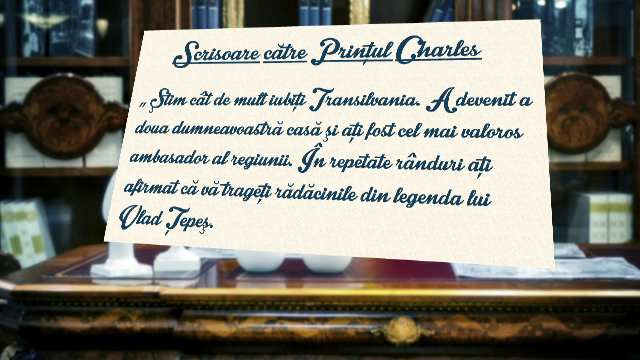 Scrisoare către Prințul Charles
„Știm cât de mult iubiți Transilvania. A devenit a
doua dumneavoastră casă și ați fost cel mai valoros
ambasador al regiunii. În repetate rânduri ați
afirmat că vă trageți rădăcinile din legenda lui
Vlad Țepeș.